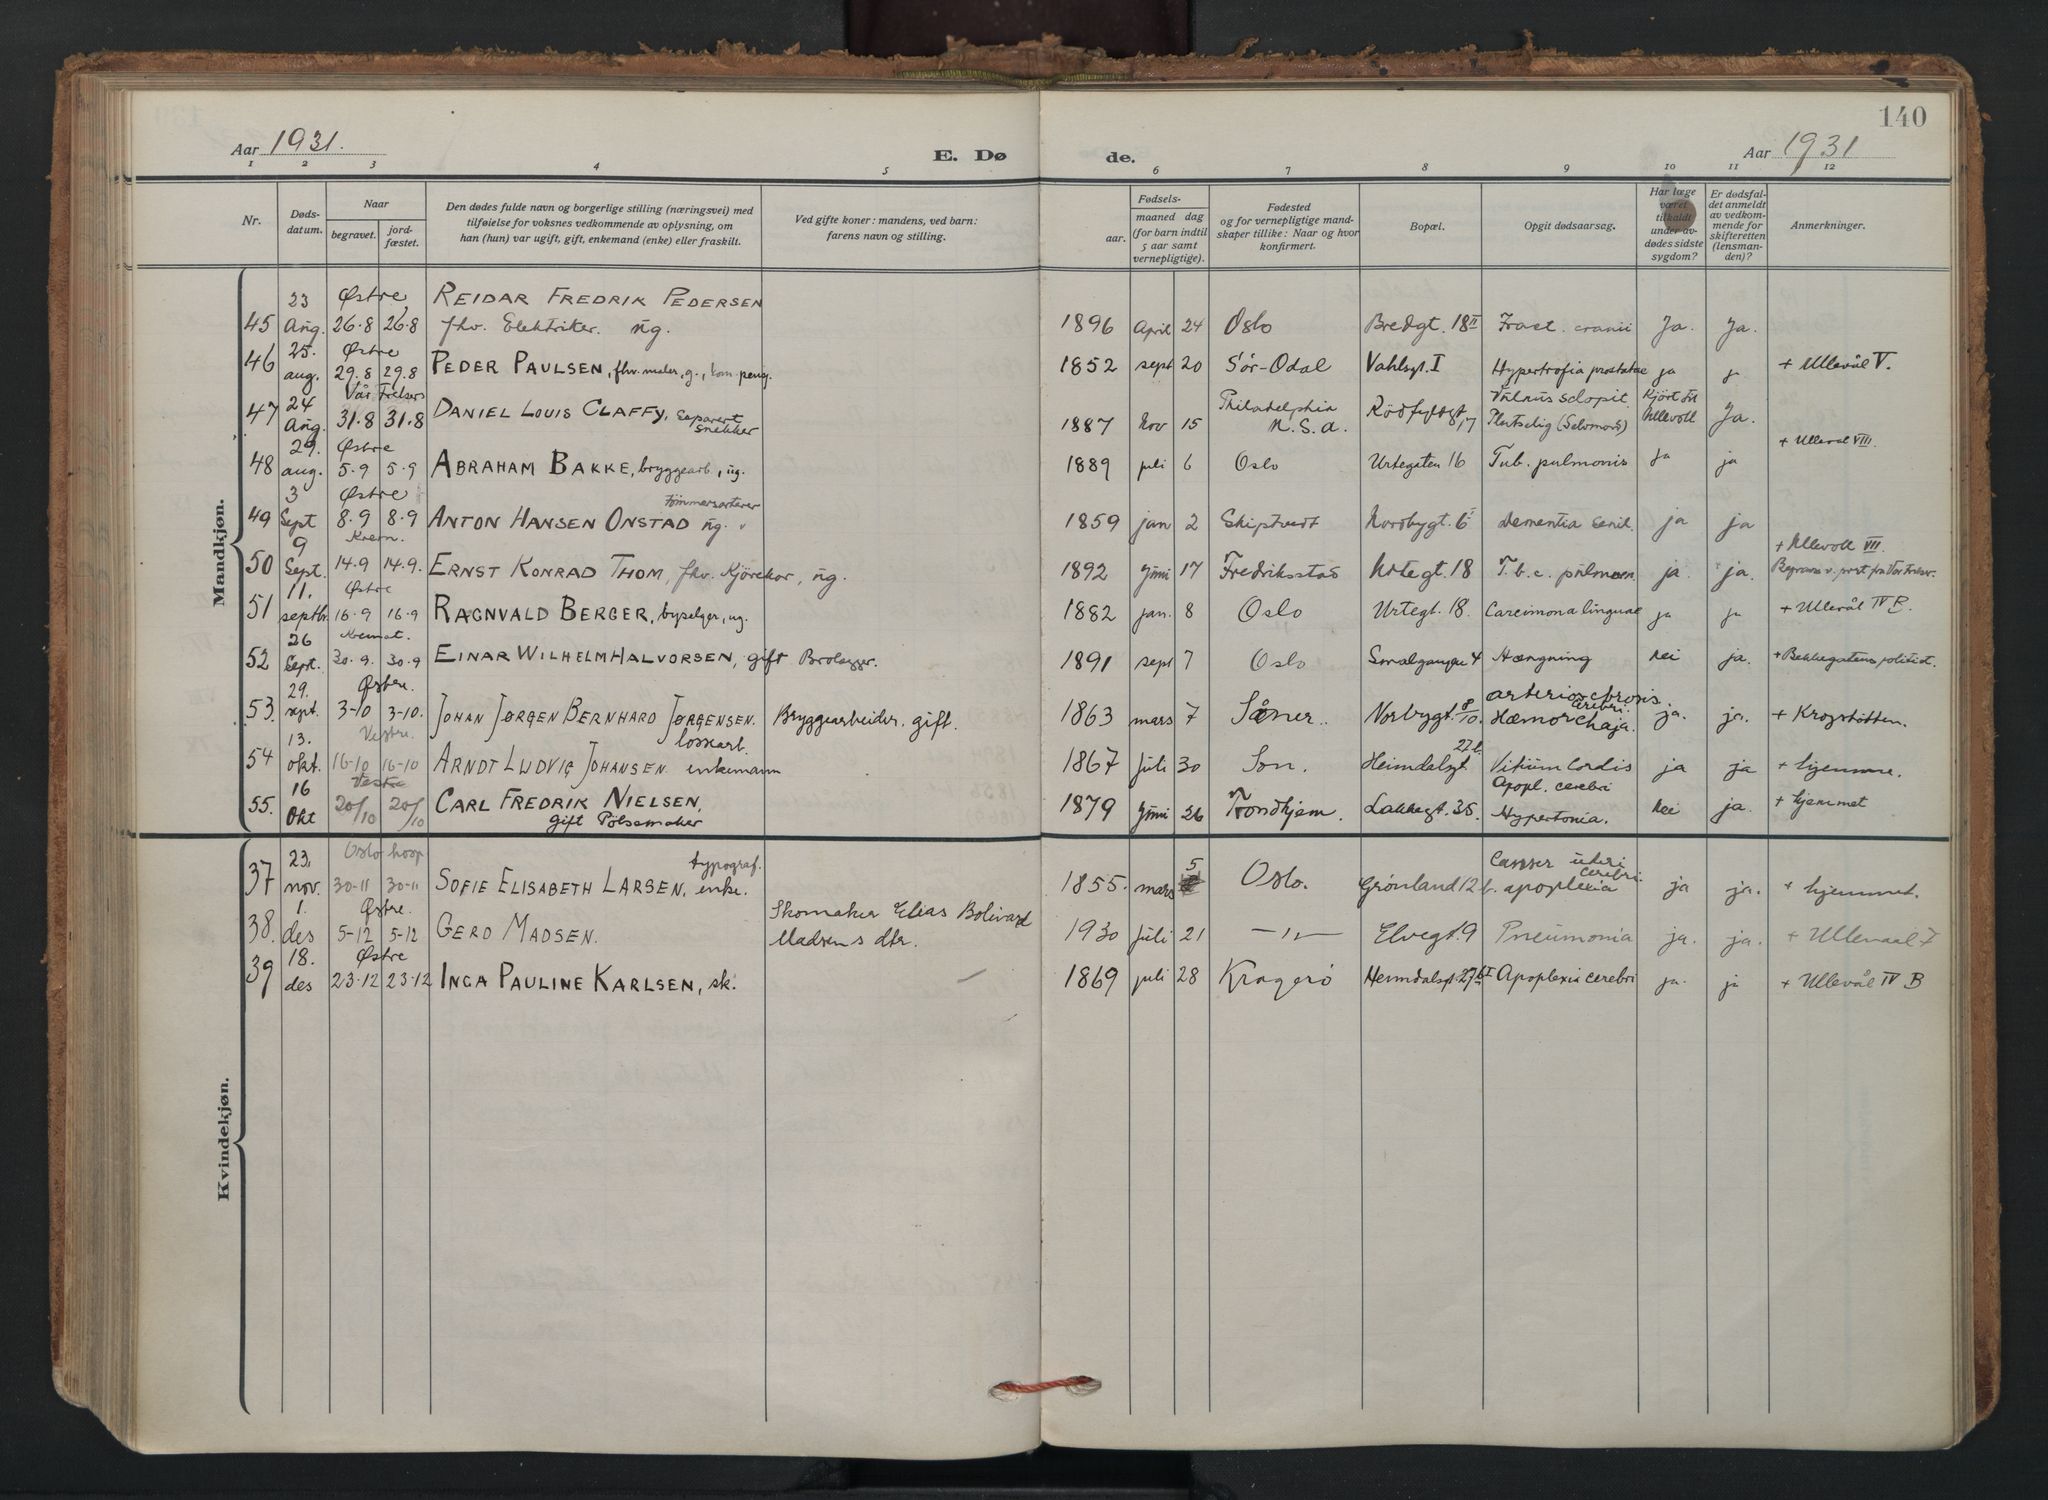 140
Aar 1931. E. Dø de. Aar 1931
1 2 3 4 5 6 7 8 9 10 11 12
Nr.
Døds-
datum.
Naar
begravet.
jord-
fæstet.
Den dødes fulde navn og borgerlige stilling (næringsvei) med
tilføielse for voksnes vedkommende av oplysning, om
han (hun) var ugift, gift, enkemand (enke) eller fraskilt.
Ved gifte koner: mandens, ved barn:
farens navn og stilling.
Fødsels-
aar.
maaned dag
(for barn indtil
5 aar samt
vernepligtige).
Fødested
og for vernepligtige mand-
skaper tillike: Naar og hvor
konfirmert.
Bopæl.
Opgit dødsaarsag.
Har læge
været
tilkaldt
under av-
dødes sidste
sygdom?
Er dødsfal-
det anmeldt
av vedkom-
mende for
skifteretten
(lensman-
den)?
Anmerkninger.
Mandkjøn.
23 Østre REIDAR FREDRIK PEDERSEN
45 Aug. 26.8 26.8 fhv. Elektriker. ug. 1896 April 24 Oslo Bredgt. 18 II Fract. cranii Ja. Ja.
25. Østre
46 aug. 29.8 29.8 PEDER PAULSEN, fhv. maler, g., kom. peng. 1852 sept 20 Sör-Odal Vahlsgt. I Hypertrofia prostatae ja j + Ullevål V.
24 Vår Frelsers
47 Aug. 31.8 31.8 DANIEL LOUIS CLAFFY, Separert snekker 1887 Nov 15 Philadelphia U.S.A. 17 Vulnus sclopit. Kjört til Ullevoll Ja.
29. Østre
48 aug. 5.9 5.9 ABRAHAM BAKKE, bryggearb., ug. 1889 juli 6 Oslo Urtegaten 16 Tub. pulmonis ja ja + Ulleval VIII.
3 Østre Tömmersorterer
49 Sept 8.9 8.9 ANTON HANSEN ONSTAD ug. 1859 jan 2 Skiptvedt Nordbygt. 6 Dementia senil. ja ja
9 Krem.
50 Sept. 14.9 14.9. ERNST KONRAD THOM, fhv. Kjörekar, ug. 1892 Juni 17 Fredriksstad Urtegt. 18 T.b.c. pulmon ja ja. + Ullevoll VII.
11. Østre
51 septbr. 16.9 16.9 RAGNVALD BERGER, byselger, ug. 1882 jan. 8 Oslo Urtegt. 18. Carcimona linguae ja ja + Ullevål IV B.
26 Kremat.
52 Sept. 30.9. 30.9 EINAR WILHELM HALVORSEN, gift Brolegger. 1891 sept 7 Oslo Smalgangen 4 Hængning Nei ja. + Bekkegatens politist.
29. Østre.
53. sept. 3-10 3-10. JOHAN JØRGEN BERNHARD JØRGENSEN. Bryggearbeider. gift. 1863 mars 7 Såner. Norbygt. 8/10. arteriosclerosis cerebri. Hæmorrhaja. ja. ja. + Krogstötten.
13. Vestre. lossearb.
54 okt. 16-10 16-10 ARNDT LUDVIG JOHANSEN. enkemann 1867 Juli 30 Son. Heimdalsgt. 27 b. Vitium Cordis ja ja + hjemme.
16 Vestre
55. Okt 20/10 20/10 CARL FREDRIK NIELSEN, gift Pölsemaker 1879 Juni 26 Trondhjem. Lakkegt. 35. Apopl. cerebri Hypertonia. Nei ja. + hjemmet
Kvindekjøn.
23. Oslo hosp typograf.
37 nov. 30-11 30-11 SOFIE ELISABETH LARSEN, enke. 1855. mars 5 Oslo. Grönland 12 b. Cancer uteri apoplexia cerebri. ja ja. + hjemmet.
1. Østre. Skomaker Elias Bolivard
38. des 5-12 5-12 GERD MADSEN. Madsens dtr. 1930 Juli 21 —"— Elvegt. 9 Pneumonia ja. ja. + Ullevaal 7
18. Østre
39 des 23.12 23.12 INGA PAULINE KARLSEN, sk. 1869 juli 28 Kragerö Heimdalsgt. 27 b I Apoplexia cerebri ja. ja + Ullevål IV B